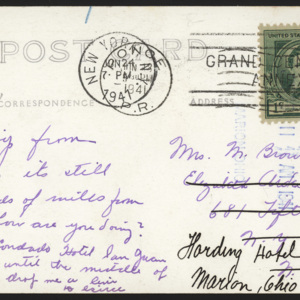 POSTCARD
NEW YORK
JUN 24
7-PM
1941
P.R.
GRAND
UNITED STATES
1¢
CORRESPONDENCE
ADDRESS
ip from
is still
ds of miles from
How are you doing?
Condado Hotel San Juan
until the middle of
drop me a line
Mrs. M. Brow
Elizabeth
681 Fift
N.Y.
Harding Hotel
Marion, Ohio